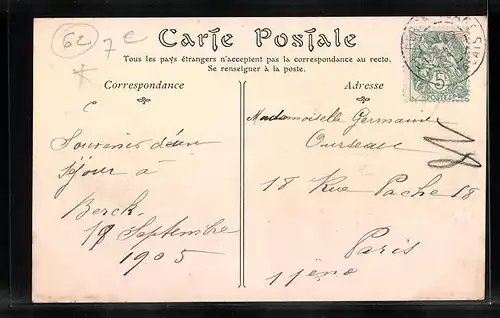 62
7 €
Carte Postale
Tous les pays étrangers n'acceptent pas la correspondance au recto.
Se renseigner à la poste.
Correspondance
Adresse
5
POSTES
Mademoiselle Germaine
Souvenir d'un
séjour à
18 Rue Pache 18
Berck.
19 Septembre
1905
Paris
11ème